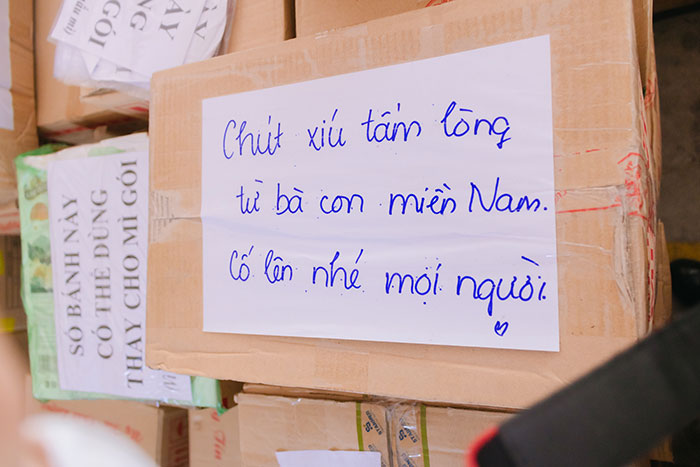 Chút xíu tấm lòng
từ bà con miền Nam.
Cố lên nhé mọi người.
SỐ BÁNH NÀY
CÓ THỂ DÙNG
THAY CHO MÌ GÓI